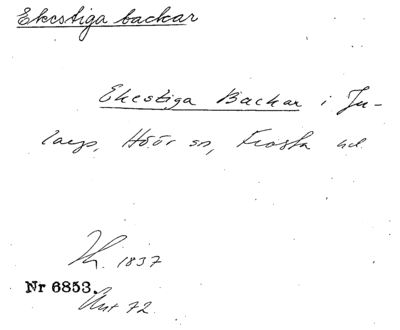 Ekestiga backar
Ekestiga Backar i Ju-
larp, Höör sn, Frosta hd
1837
Nr 6853.
72.